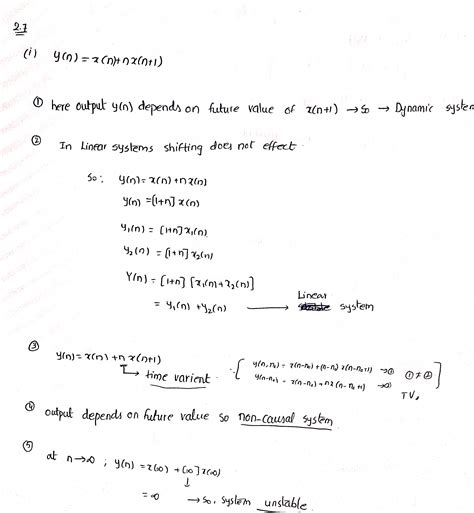 2.7
(i) y(n) = x(n)+n x(n+1)
① here output y(n) depends on future value of x(n+1) → so → Dynamic system
② In Linear systems shifting does not effect.
So: y(n) = x(n)+n x(n)
y(n) = [1+n] x(n)
y₁(n) = [1+n] x₁(n)
y₂(n) = [1+n] x₂(n)
Y(n) = [1+n] [x₁(n)+x₂(n)]
= y₁(n) + y₂(n) → Linear system
③ y(n) = x(n) + n x(n+1)
→ time varient
y(n,n₀) = x(n-n₀)+(n-n₀) x(n-n₀+1) →① ①≠②
y(n-n₀) = x(n-n₀)+n x(n-n₀+1) →②
TV,
④ output depends on future value so non-causal system
⑤ at n→∞ ; y(n) = x(∞) + [∞] x(∞)
↓
= ∞ → so, system unstable.